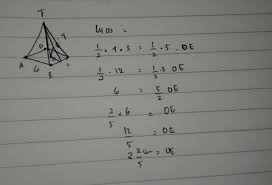 T
A
B
C
6
Luas =
1/2 . 4 . 3 = 1/2 . 5 . OE
1/2 . 12 = 1/2 . 5 OE
6 = 5/2 OE
2/5 . 6 = OE
12/5 = OE
2 2/5 cm = OE